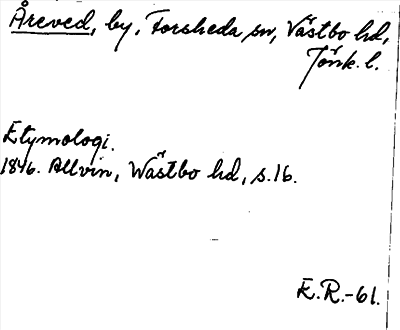 Åreved, by, Forsheda sn, Västbo hd,
Jönk. l.
Etymologi.
1846. Allvin, Wästbo hd, s. 16.
E.R.-61.